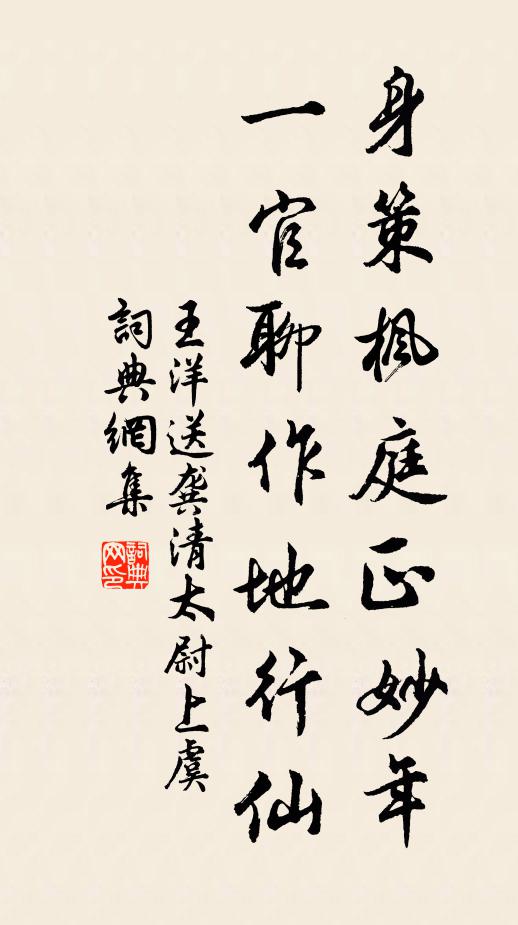 身策楓庭正妙年
一官聊作地行仙
王洋送龚清太尉上虞
詞典網集
詞典
网印